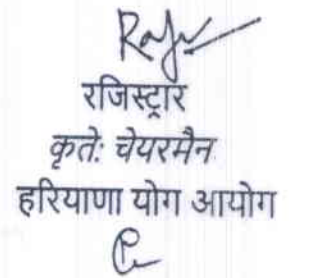 रजिस्ट्रार
कृतेः चेयरमैन
हरियाणा योग आयोग